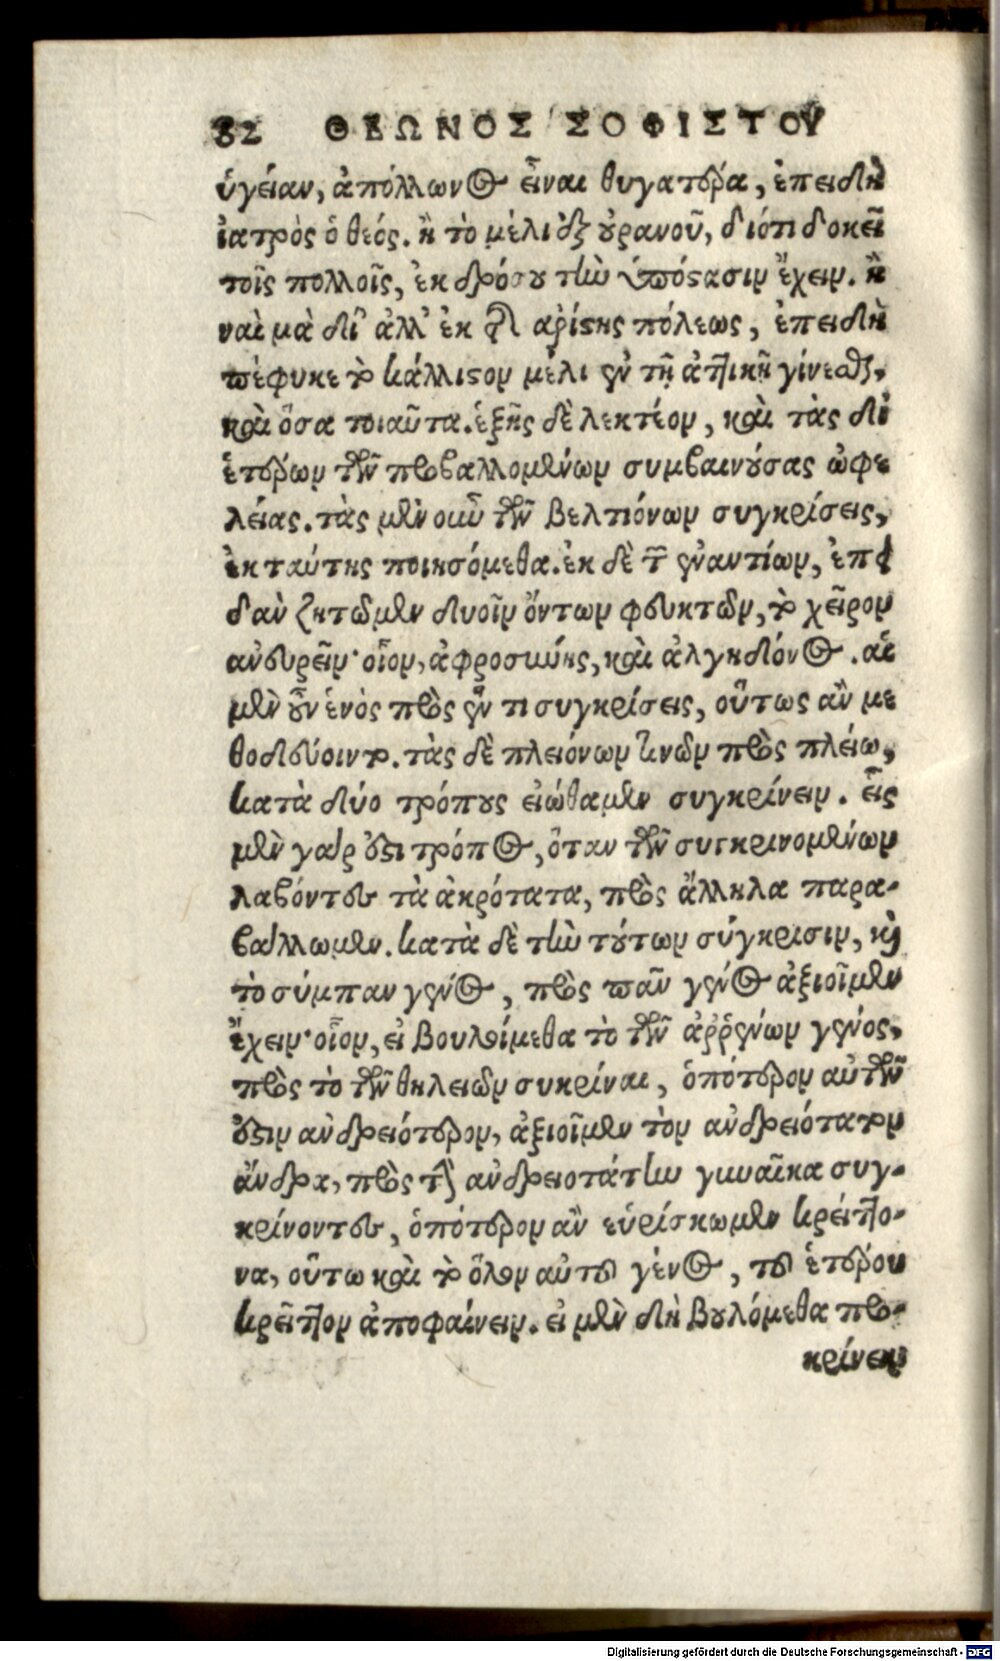 82 ΘΕΩΝΟΣ ΣΟΦΙΣΤΟΥ
ὑγείαν, ἀπόλλωνος εἶναι θυγατέρα, ἐπειδὴ
ἰατρὸς ὁ θεός. ἢ τὸ μέλι ἐξ οὐρανοῦ, διότι δοκεῖ
τοῖς πολλοῖς, ἐκ δρόσου τὴν ὑπόστασιν ἔχειν. ἢ
ναὶ μὰ δί' ἀλλ' ἐκ τῆς ἀρίστης πόλεως, ἐπειδὴ
πέφυκε τὸ κάλλιστον μέλι ἐν τῇ ἀττικῇ γίνεσθαι,
καὶ ὅσα τοιαῦτα. ἑξῆς δὲ λεκτέον, καὶ τὰς δι'
ἑτέρων τῶν προβαλλομένων συμβαινούσας ὠφε
λείας. τὰς μὲν οὖν τῶν βελτιόνων συγκρίσεις,
ἐκ ταύτης ποιησόμεθα. ἐκ δὲ τῶν ἐναντίων, ἐπει
δὰν ζητῶμεν δυοῖν ὄντων φευκτῶν, τὸ χεῖρον
ἀνευρεῖν· οἷον, ἀφροσύνης, καὶ ἀλγηδόνος. αἱ
μὲν οὖν ἑνὸς πρὸς ἕν τι συγκρίσεις, οὕτως ἂν με
θοδεύοιντο. τὰς δὲ πλειόνων τινῶν πρὸς πλείω,
κατὰ δύο τρόπους εἰώθαμεν συγκρίνειν. εἷς
μὲν γάρ ἐστι τρόπος, ὅταν τῶν συγκρινομένων
λαβόντες τὰ ἀκρότατα, πρὸς ἄλληλα παρα-
βάλλωμεν. κατὰ δὲ τὴν τούτων σύγκρισιν, καὶ
τὸ σύμπαν γένος, πρὸς πᾶν γένος ἀξιοῖμεν
ἔχειν· οἷον, εἰ βουλοίμεθα τὸ τῶν ἀῤῥένων γένος,
πρὸς τὸ τῶν θηλειῶν συκρίναι, ὁπότερον αὐτῶν
ἐστιν ἀνδρειότερον, ἀξιοῖμεν τὸν ἀνδρειότατον
ἄνδρα, πρὸς τὴν ἀνδρειοτάτην γυναῖκα συγ-
κρίνοντες, ὁπότερον ἂν εὑρίσκωμεν κρείττο-
να, οὕτω καὶ τὸ ὅλον αὐτοῦ γένος, τοῦ ἑτέρου
κρεῖττον ἀποφαίνειν. εἰ μὲν δὴ βουλόμεθα προ-
κρίνειν
Digitalisierung gefördert durch die Deutsche Forschungsgemeinschaft - DFG